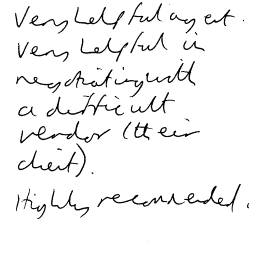 Very helpful agent.
Very helpful in
negotiating with
a difficult
vendor (their
client).
Highly recommended.